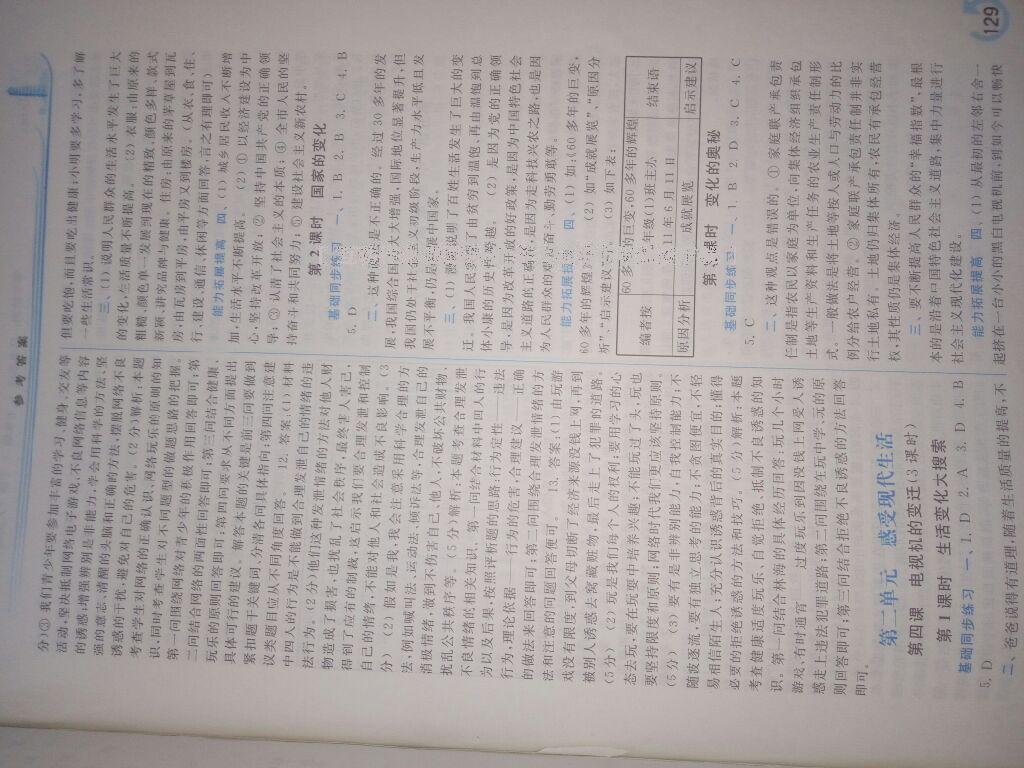 参 考 答 案
分)③我们青少年要参加丰富的学习、健身、交友等
活动,坚决抵制网络电子游戏、不良网络信息等内容
的诱惑;增强辨别是非能力,学会用科学的方法、坚
强的意志、清醒的头脑和正确的方法,摆脱网络不良
诱惑的干扰,避免对自己的危害。(2分)解析:本题
考查学生对网络的正确认识、网络玩乐的原则的知
识,同时考查学生对不同题型的做题思路的把握。
第一问围绕网络对青少年的积极作用回答即可;第
二问结合网络的两面性回答即可;第三问结合健康
玩乐的原则回答即可;第四问要求从不同方面提出
具体可行的建议。解答本题的关键是前三问要做到
紧扣题干关键词,分清各问具体指向;第四问注意建
议类题目应从不同角度回答。 12. 答案:(1)材料
中四人的行为是不能做到合理发泄自己的情绪的违
法行为。(2分)他们这种发泄情绪的方法对他人财
物造成了损害,也扰乱了社会秩序,最终害人害己,
得到了应有的制裁,这启示我们要合理发泄和控制
自己的情绪,不能对他人和社会造成不良影响。(3
分) (2)假如是我,我会注意采用科学合理的方
法,例如喊叫法、运动法、倾诉法等,合理发泄自己的
消极情绪,做到不伤害自己、他人,不破坏公共财物、
扰乱公共秩序等。(5分)解析:本题考查合理发泄
不良情绪的相关知识。第一问结合材料中四人的行
为以及后果,按照评析题的思路:行为定性——违法
行为,理论依据——行为的危害,合理建议——正确
的做法来回答即可;第二问围绕合理发泄情绪的方
法和注意的问题回答便可。 13. 答案:(1)由玩游
戏没有限度,到父母切断了经济来源没钱上网,再到
被别人诱惑去窝藏赃物,最后走上了犯罪的道路。
(5分) (2)玩是我们每个人的权利;要用学习的心
态去玩,要在玩耍中培养兴趣;不能玩过了头;玩也
要坚持限度和原则;网络时代我们更应该坚持原则。
(5分) (3)要有是非辨别能力,自我控制能力;不
随波逐流,要有独立思考的能力;不贪图便宜,不轻
易相信陌生人,充分认识诱惑背后的真实目的;懂得
必要的拒绝诱惑的方法和技巧。(5分)解析:本题
考查健康适度玩乐、自觉拒绝、抵制不良诱惑的知
识。第一问结合林海的具体经历回答:玩几个小时
游戏,有时通宵——过度玩乐到因没钱上网受人诱
惑走上违法犯罪道路;第二问围绕在玩中学、元的原
则回答即可;第三问结合拒绝不良诱惑的方法回答
即可。
第二单元 感受现代生活
第四课 电视机的变迁(3课时)
第1课时 生活变化大搜索
基础同步练习 一、1. D 2. A 3. D 4. B
5. D
二、爸爸说得有道理,随着生活质量的提高,不
但要吃饱,而且要吃出健康;小明要多学习,多了解
一些生活常识。
三、(1)说明人民群众的生活水平发生了巨大
的变化,生活质量不断提高。 (2)衣服:由原来的
粗糙、颜色单一发展到现在的精致、颜色多样、款式
新颖、讲究品牌与健康。住房:由原来的茅草屋到瓦
房,由瓦房到平房,由平房又到楼房。(从衣、食、住、
行、建设、通信、休闲等方面回答,言之有理即可)
能力拓展提高 四、(1)城乡居民收入不断增
加,生活水平不断提高。 (2)①以经济建设为中
心,坚持改革开放;②坚持中国共产党的正确领
导;③认清了社会主义的本质;④全市人民的坚
持奋斗和共同努力;⑤建设社会主义新农村。
第2课时 国家的变化
基础同步练习 一、1. B 2. B 3. C 4. B
5. D
二、这种说法是不正确的。经过30多年的发
展,我国综合国力大大增强,国际地位显著提升,但
我国仍处于社会主义初级阶段,生产力水平低且发
展不平衡,仍是发展中国家。
三、(1)说明了百姓生活发生了巨大的变
迁,我国人民实现了由贫穷到温饱、再由温饱到总
体小康的历史性跨越。 (2)是因为党的正确领
导,是因为改革开放的好政策,是因为中国特色社会
主义道路的正确,是因为走科技兴农之路,也是因
为人民群众的艰苦奋斗、勤劳勇敢等。
能力拓展提高 四、(1)如:《60多年的巨变,
60多年的辉煌》 (2)如“成就展览”、“原因分
析”、“启示建议”等。 (3)如下表:
60多年的巨变,60多年的辉煌
编者按 五年级(1)班主办 结束语
11年6月11日
原因分析 成就展览 启示建议
第3课时 变化的奥秘
基础同步练习 一、1. B 2. D 3. C 4. C
5. C
二、这种观点是错误的。①家庭联产承包责
任制是指农民以家庭为单位,向集体经济组织承包
土地等生产资料和生产任务的农业生产责任制形
式。一般做法是将土地等按人口与劳动力的比
例分给农户经营。②家庭联产承包责任制并非实
行土地私有。土地仍归集体所有,农民有承包经营
权,其性质仍是集体经济。
三、要不断提高人民群众的“幸福指数”,最根
本的是沿着中国特色社会主义道路,集中力量进行
社会主义现代化建设。
能力拓展提高 四、(1)从最初的左邻右舍一
起挤在一台小小的黑白电视机前,到如今可以畅快
129